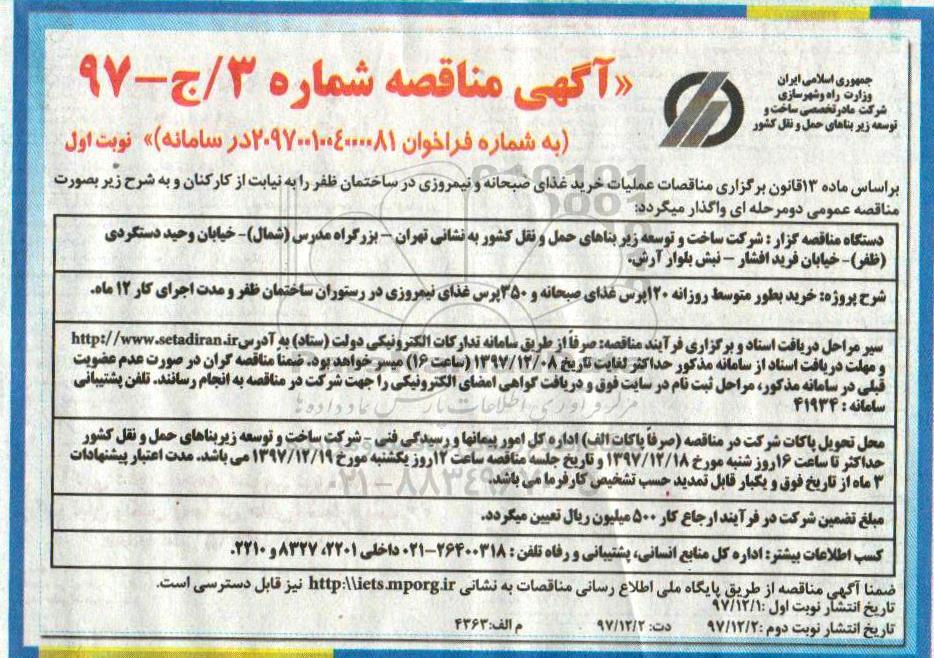 جمهوری اسلامی ایران
وزارت راه وشهرسازی
شرکت مادر تخصصی ساخت و
توسعه زیر بناهای حمل و نقل کشور
«آگهی مناقصه شماره ۳/ج-۹۷
(به شماره فراخوان ۲۰۹۷۰۰۱۰۰۴۰۰۰۰۸۱در سامانه)» نوبت اول
براساس ماده ۱۳قانون برگزاری مناقصات عملیات خرید غذای صبحانه و نیمروزی در ساختمان ظفر را به نیابت از کارکنان و به شرح زیر بصورت
مناقصه عمومی دومرحله ای واگذار میگردد:
دستگاه مناقصه گزار : شرکت ساخت و توسعه زیر بناهای حمل و نقل کشور به نشانی تهران – بزرگراه مدرس (شمال)- خیابان وحید دستگردی
(ظفر)- خیابان فرید افشار – نبش بلوار آرش.
شرح پروژه: خرید بطور متوسط روزانه ۱۲۰پرس غذای صبحانه و ۳۵۰پرس غذای نیمروزی در رستوران ساختمان ظفر و مدت اجرای کار ۱۲ ماه.
سیر مراحل دریافت اسناد و برگزاری فرآیند مناقصه: صرفاً از طریق سامانه تدارکات الکترونیکی دولت (ستاد) به آدرس http://www.setadiran.ir
و مهلت دریافت اسناد از سامانه مذکور حداکثر لغایت تاریخ ۱۳۹۷/۱۲/۰۸ (ساعت ۱۶) میسر خواهد بود. ضمناً مناقصه گران در صورت عدم عضویت
قبلی در سامانه مذکور، مراحل ثبت نام در سایت فوق و دریافت گواهی امضای الکترونیکی را جهت شرکت در مناقصه به انجام رسانند. تلفن پشتیبانی
سامانه : ۴۱۹۳۴
محل تحویل پاکات شرکت در مناقصه (صرفاً پاکات الف) اداره کل امور پیمانها و رسیدگی فنی – شرکت ساخت و توسعه زیربناهای حمل و نقل کشور
حداکثر تا ساعت ۱۶روز شنبه مورخ ۱۳۹۷/۱۲/۱۸ و تاریخ جلسه مناقصه ساعت ۱۲روز یکشنبه مورخ ۱۳۹۷/۱۲/۱۹ می باشد. مدت اعتبار پیشنهادات
۳ ماه از تاریخ فوق و یکبار قابل تمدید حسب تشخیص کارفرما می باشد.
مبلغ تضمین شرکت در فرآیند ارجاع کار ۵۰۰ میلیون ریال تعیین میگردد.
کسب اطلاعات بیشتر: اداره کل منابع انسانی، پشتیبانی و رفاه تلفن : ۲۶۴۰۰۳۱۸-۰۲۱ داخلی ۲۲۰۱، ۸۳۲۷ و ۲۲۱۰.
ضمنا آگهی مناقصه از طریق پایگاه ملی اطلاع رسانی مناقصات به نشانی http:\\iets.mporg.ir نیز قابل دسترسی است.
تاریخ انتشار نوبت اول :۹۷/۱۲/۱
تاریخ انتشار نوبت دوم :۹۷/۱۲/۲ دت: ۹۷/۱۲/۲ م الف:۴۳۶۳